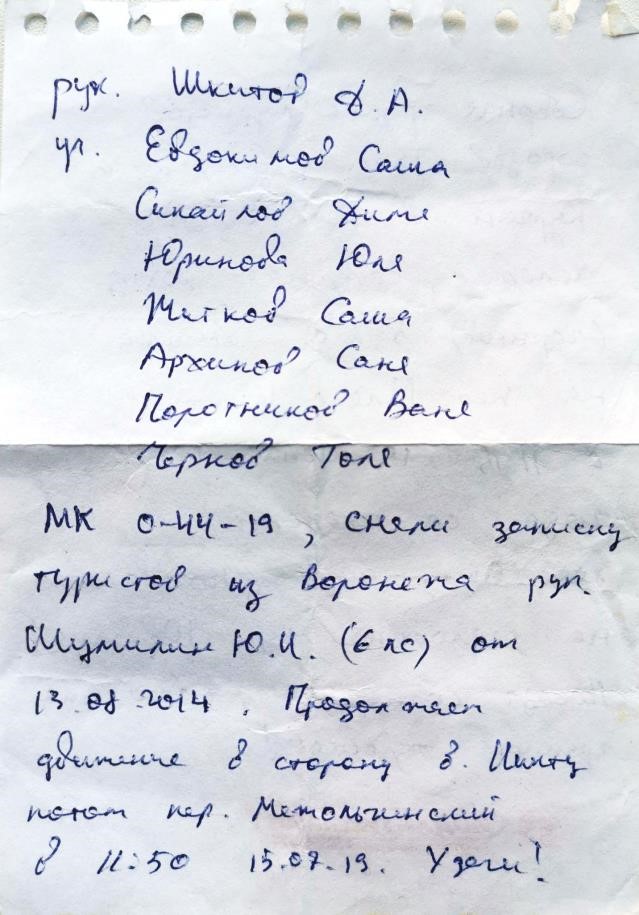 рук. Шкитов Д.А.
уч. Евдокимов Саша
Сикайлов Дима
Юринова Юля
Житков Саша
Архипов Саня
Поротников Ваня
Чернов Толя
МК 0-44-19, сняли записку
туристов из Воронежа рук.
Шумилин Ю.И. (6 лс) от
13.08.2014. Продолжаем
движение в сторону в.
потом пер.
в 11:50 15.07.19. Удачи!